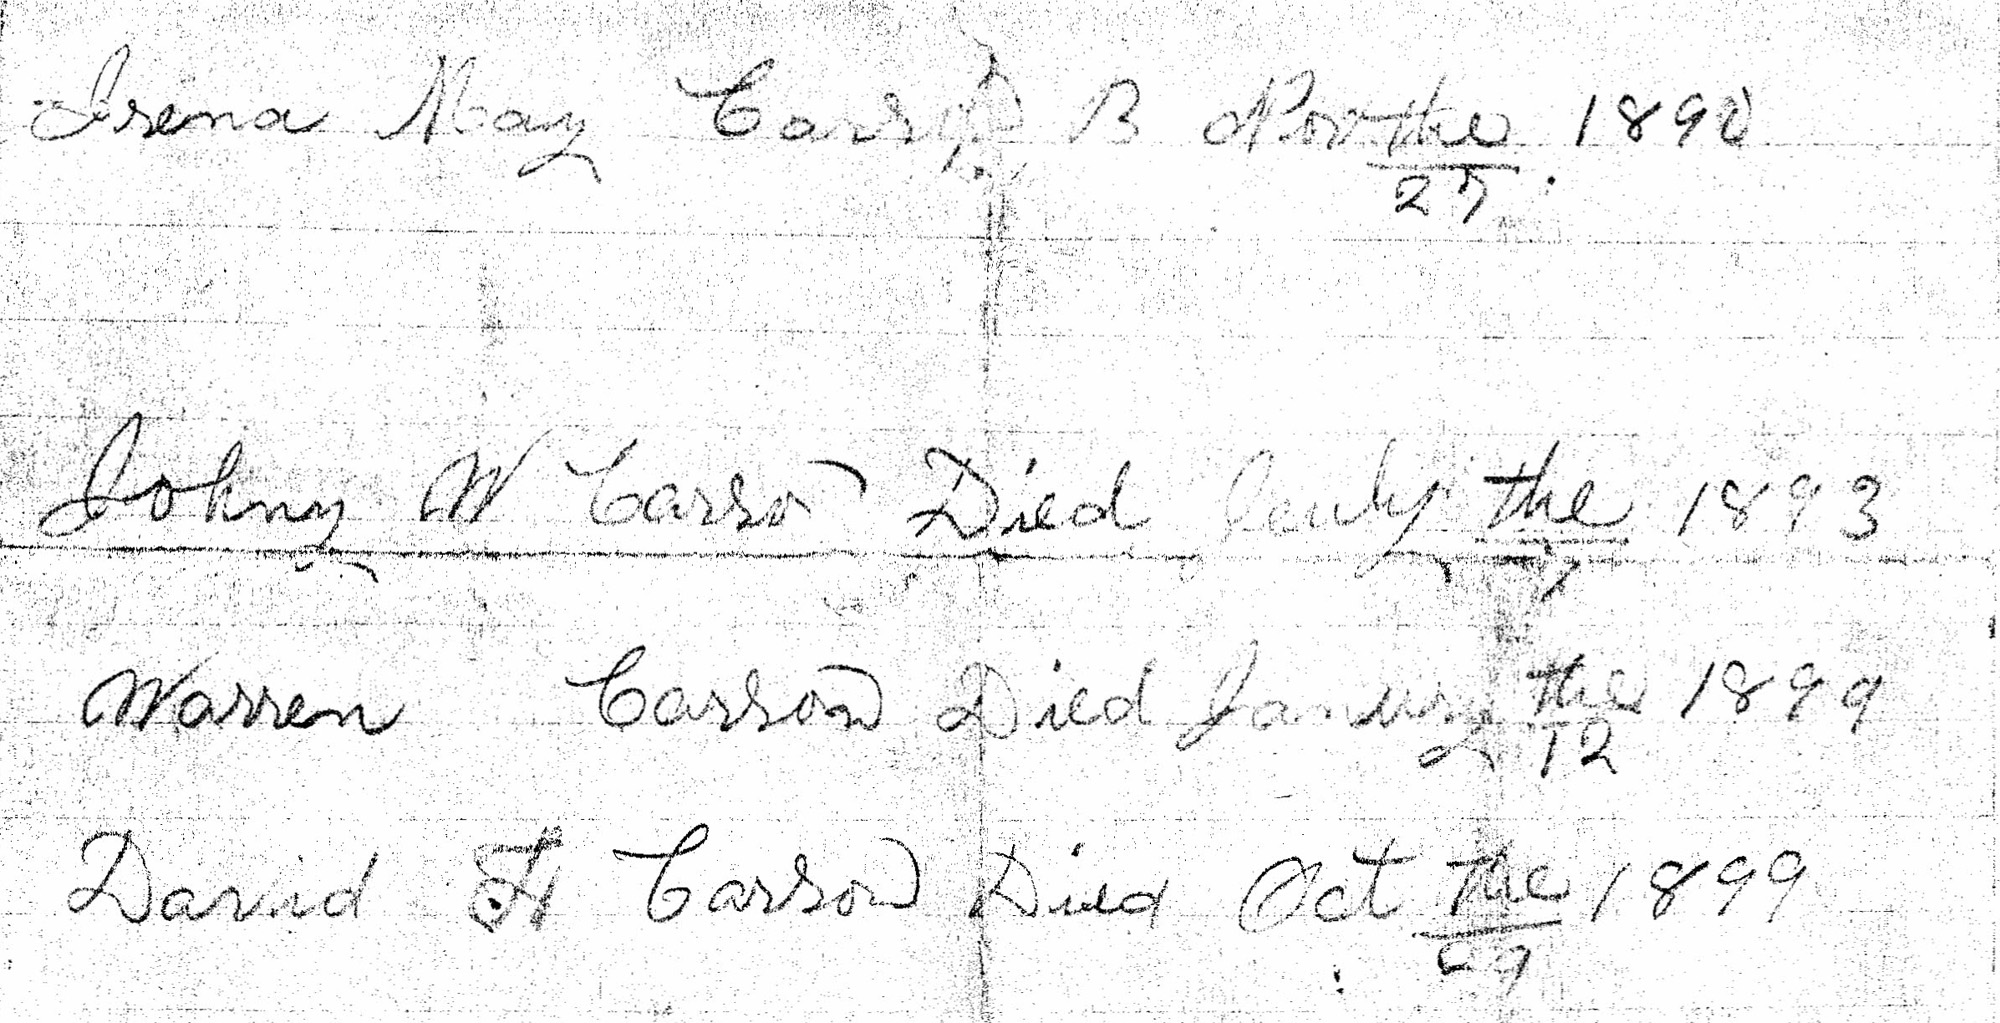 Irena May Carson B Nov the 27 1890
Johny W Carson Died July the 7 1893
Warren Carson Died Janury the 12 1899
David H Carson Died Oct the 29 1899